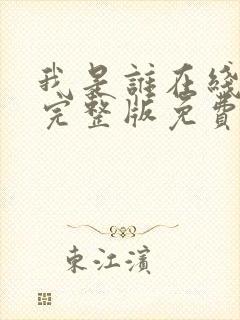 我是誰在綫
完整版免費
東江濱